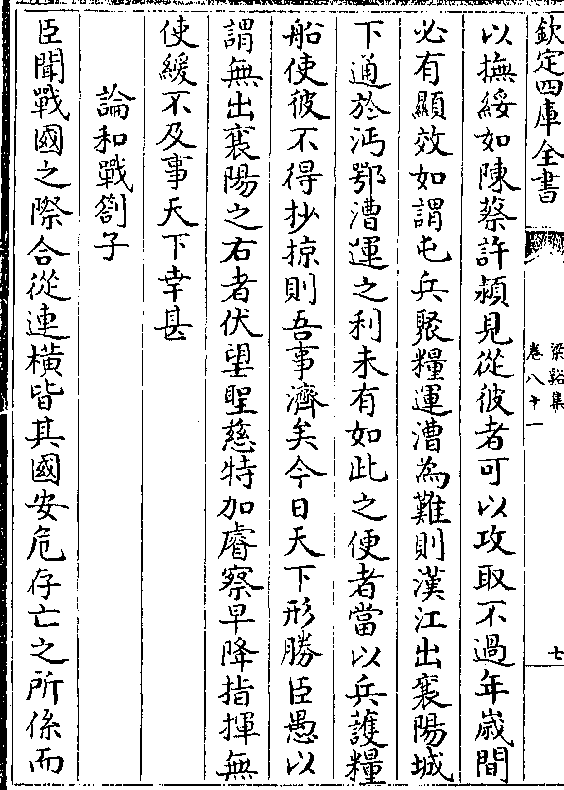 欽定四庫全書
梁谿集
卷八十一
七
以撫綏如陳蔡許潁見從彼者可以攻取不過年歲間
必有顯效如謂屯兵聚糧運漕為難則漢江出襄陽城
下通於沔鄂漕運之利未有如此之便者當以兵護糧
船使彼不得抄掠則吾事濟矣今日天下形勝臣愚以
謂無出襄陽之右者伏望聖慈特加睿察早降指揮無
使緩不及事天下幸甚
論和戰劄子
臣聞戰國之際合從連橫皆其國安危存亡之所係而